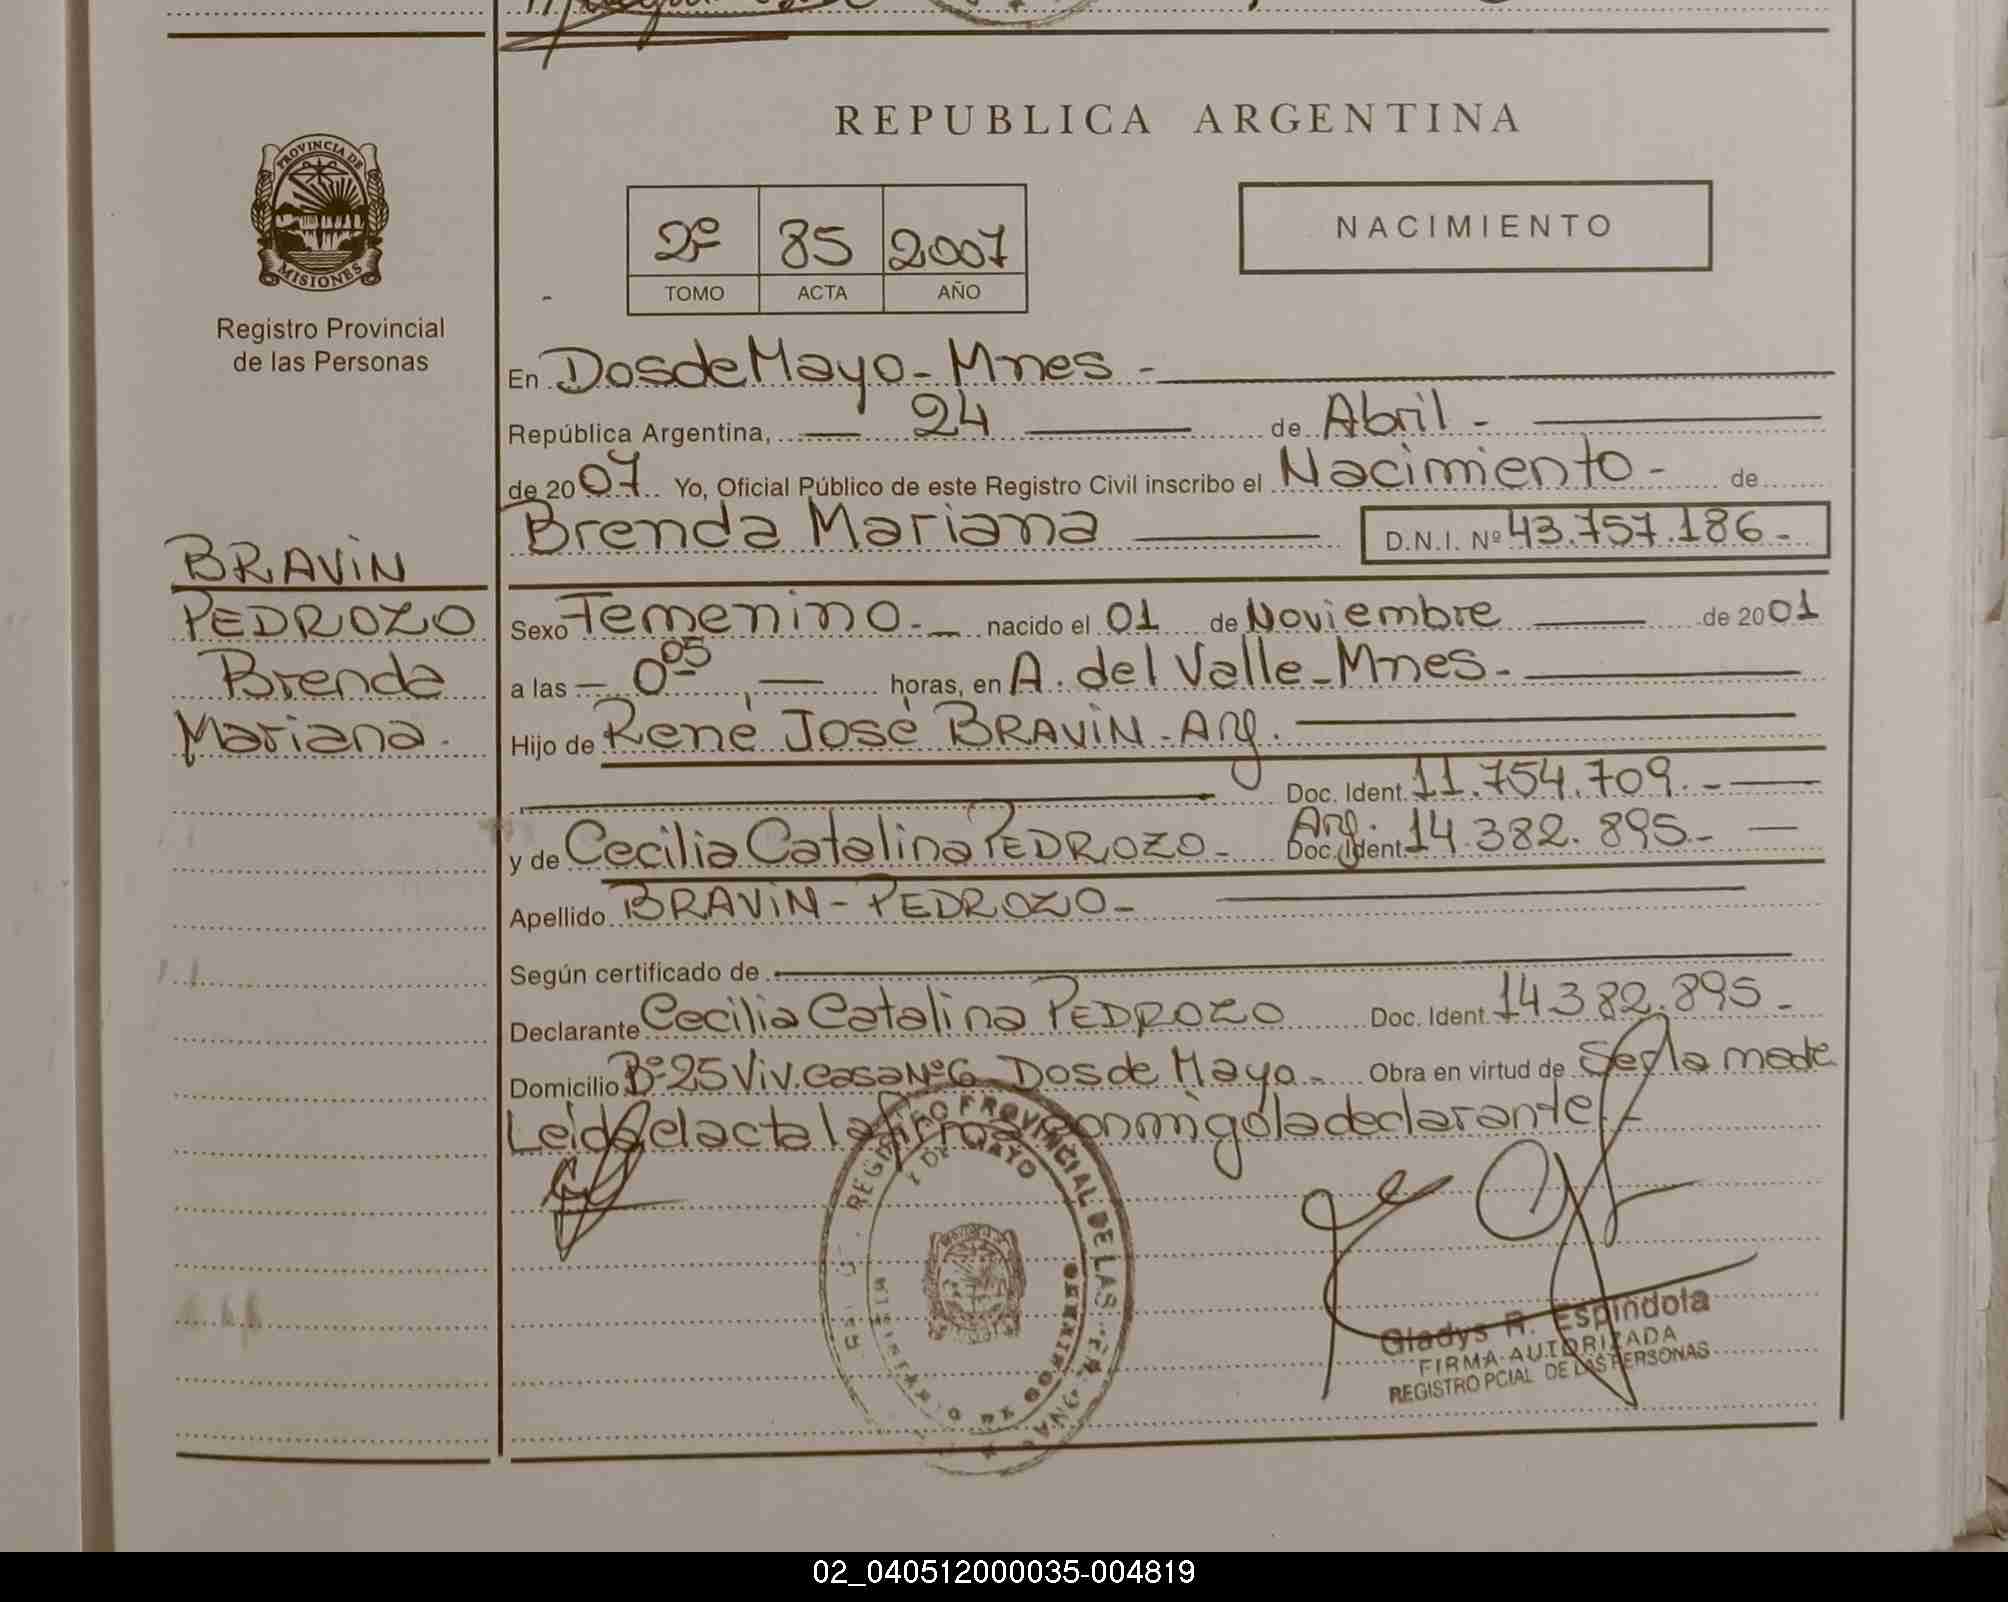 REPUBLICA ARGENTINA
PROVINCIA DE
MISIONES
Registro Provincial
de las Personas
2º 85 2007
TOMO ACTA AÑO
NACIMIENTO
En Dos de Mayo - Mnes -
República Argentina, 24 de Abril -
de 2007 Yo, Oficial Público de este Registro Civil inscribo el Nacimiento - de
Brenda Mariana D.N.I. Nº 43.757.186 -
BRAVIN
PEDROZO
Brenda
Mariana.
Sexo Femenino - nacido el 01 de Noviembre de 2001
a las 0 05 horas, en A. del Valle - Mnes -
Hijo de René José BRAVIN - Arg.
Doc. Ident. 11.754.709. -
y de Cecilia Catalina PEDROZO - Arg. Doc. Ident. 14.382.895 -
Apellido BRAVIN - PEDROZO -
Según certificado de
Declarante Cecilia Catalina PEDROZO Doc. Ident. 14382.895 -
Domicilio Bº 25 Viv. Casa Nº 6 Dos de Mayo - Obra en virtud de Ser la madre
Leida el acta la firma conmigo la declarante -
REGISTRO PROVINCIAL DE LAS
2 DE MAYO
Gladys R. Espindola
FIRMA AUTORIZADA
REGISTRO PCIAL DE LAS PERSONAS
02_040512000035-004819